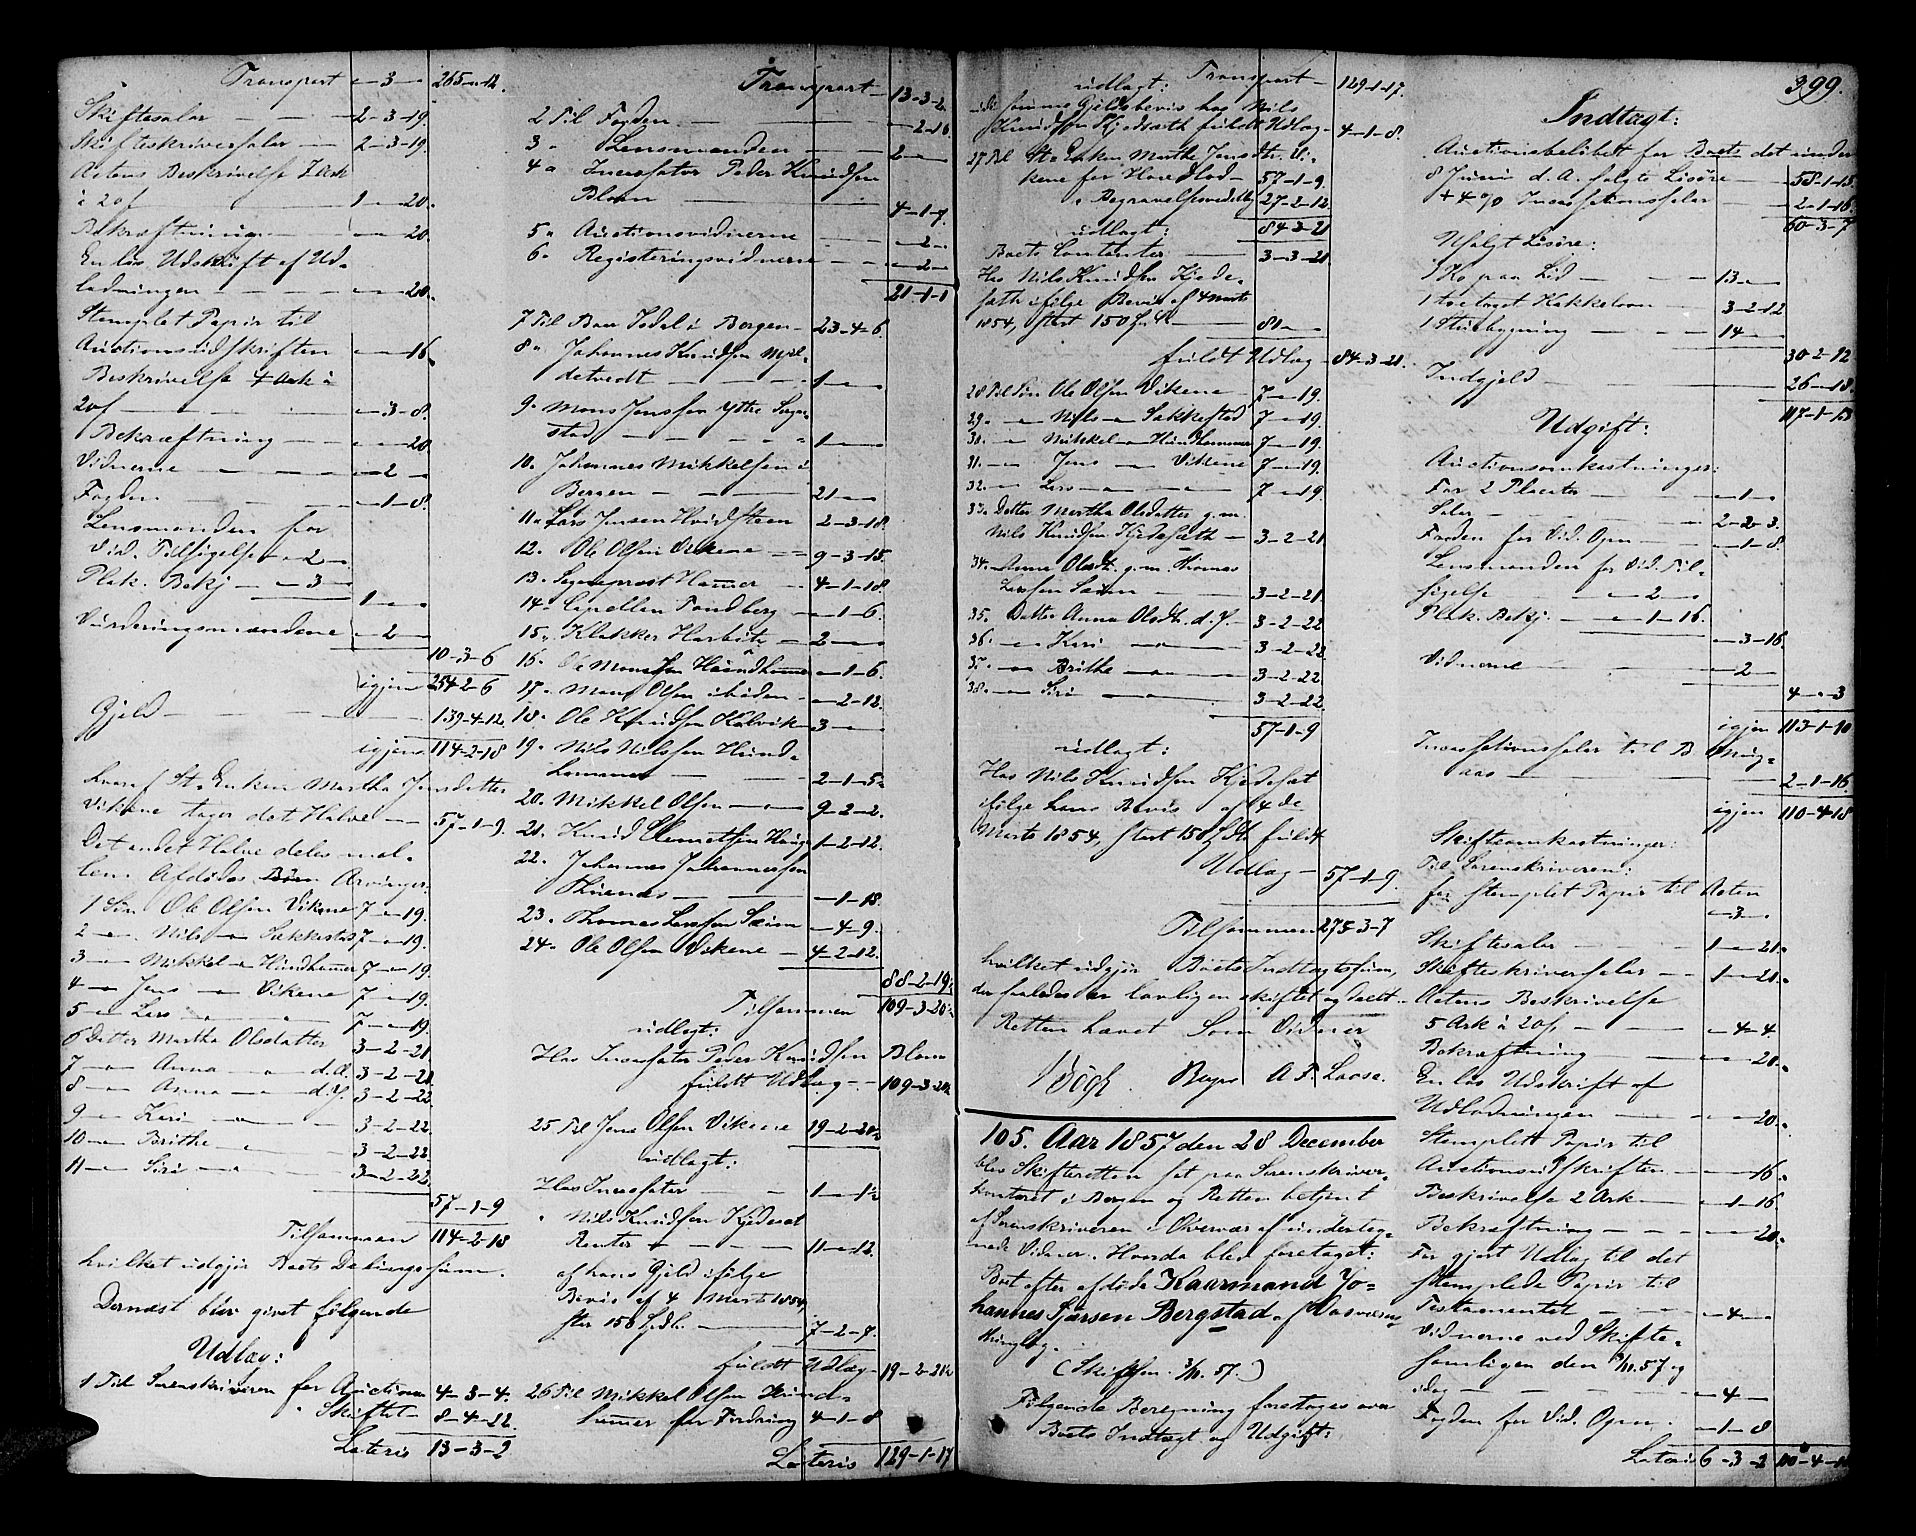 Transport — 3 — 265 — 12.
Skiftesalær — — 2 - 3 - 19.
Skifteskriversalær — 2 - 3 - 19.
Actens Beskrivelse 7 Ark
à 20ſ — 1 — 20.
Bekræftningen — — 20.
En løs Udskrift af Ud-
lodningen — — — — 20.
Stemplet Papir til
Auctionsudskriften — — 16
Beskrivelse 4 Ark à
20ſ — — — 3 - 8.
Bekræftning — — — 20
Vidnerne — — — 2 —
Fogden — — — 1 - 8.
Lensmanden for
Vid. Tilsigelse — 2 —
Plak. Bekj — — 3 —
1 — —
Vurderingsmændene — 2 —
10 - 3 - 6
igjen 254 - 2 - 6
Gjeld — — — — 139 - 4 - 12.
igjen 114 - 2 - 18
hvoraf St. Enken Martha Jensdatter
Vikene tager det Halve — 57 - 1 - 9.
Det andet Halve deles mel-
lem Afdødes Børn Arvinger:
1 Søn Ole Olsen Vikene 7 — 19.
2 — Nils — Sækkestad 7 — 19.
3 — Mikkel — Hundhamer 7 — 19.
4 — Jens — Vikene 7 — 19.
5 — Lars — — 7 — 19.
6 Datter Martha Olsdatter 3 - 2 - 21
7 — Anna — d.æ. 3 - 2 - 21
8 — Anna — d.y. 3 - 2 - 22
9 — Kari — 3 - 2 - 22.
10 — Brithe — 3 - 2 - 22.
11 — Siri — 3 - 2 - 22
57 - 1 - 9
Tilsammen 114 - 2 - 18
hvilket udgjør Boets Delingssum.
Dernæst blev givet følgende
Udlæg:
1 Til Sorenskriveren for Auctionen 4 - 3 - 4.
" Skiftet — 8 - 4 - 22.
Lateris 13 - 3 - 2
Transport — 13 - 3 - 2.
2 Til Fogden — — — 2 - 16.
3 " Lensmanden — — 2 — —
4 " Incassator Peder Knudsen
Blom — — 4 - 1 - 7.
5 " Auctionsvidnerne — — 2 —
6 " Registeringsvidnerne — — 2 —
21 - 1 - 1
7 Til Boe Isdal i Bergen — 23 - 4 - 6.
8 " Johannes Knudsen Mjel-
detvedt — — — 1 — —
9 " Mons Jensen Yttre Sæge-
stad — — — 1 — —
10. Johannes Mikkelsen i
Bergen — — — 21 — —
11 " Lars Jensen Hvidsteen 2 - 3 - 18.
12. Ole Olsen Vikene — 9 - 3 - 15.
13. Sogneprest Hammer — 4 - 1 - 18.
14. Capellen Sandberg — — 1 - 6.
15. Klokker Herbitz — 2 — —
16. Ole Monssen Hundhamer — 1 - 6.
17. Mons Olsen ibiden — — 2 - 12.
18. Ole Knudsen Kalvik 3 — —
19. Nils Nilssen Hund-
hammer — — 2 - 1 - 5.
20. Mikkel Olsen — — 9 - 2 - 2.
21. Knud Clemetsen Haug 1 - 2 - 12.
22. Johannes Johannessen
Thunæs — — — 1 - 18.
23. Thomas Larssen Seim — 4 - 9.
24. Ole Olsen Vikene — 4 - 2 - 12.
88 - 2 - 19½
Tilsammen 109 - 3 - 20½
udlagt:
Hos Incassator Peder Knudsen Blom
fuldt Udlæg — 109 - 3 - 20½
25 Til Jens Olsen Vikene 19 - 2 - 20½
udlagt:
Hos Incassator — — 1 — 1½
" Nils Knudsen Kjedesæt
Renter — — — 11 — 12.
af hans Gjeld ifølge
Bevis af 4 Marts 1854,
stor 150 Spdl. — 7 - 2 - 7.
fuldt Udlæg — 19 - 2 - 20½
26 Til Mikkel Olsen Hund-
hamer for Fordring 4 - 1 - 8
Lateris 129 - 1 - 17
Transport — 129 - 1 - 17.
udlagt:
udi samme Gjeldsbevis hos Nils
Knudsen Kjedesæth fuldt Udlæg — 4 - 1 - 8.
27 Til St. Enken Marthe Jensdtr. Vi-
kene for Hovedlod — 57 - 1 - 9.
" Begravelsesvederlag 27 - 2 - 12
udlagt: 84 - 3 - 21
Boets Contanter — 3 - 3 - 21
Hos Nils Knudsen Kjede-
sæth ifølge Bevis af 4 Marts
1854, stort 150 Spd. — 81 — —
fuldt Udlæg — 84 - 3 - 21.
28 Til Søn Ole Olsen Vikene — 7 — 19.
29. — Nils — Sækkestad 7 — 19.
30. — Mikkel — Hundhammer 7 — 19.
31. — Jens — Vikene 7 — 19.
32. — Lars — — 7 — 19.
33. Datter Martha Olsdatter g.m.
Nils Knudsen Kjedesæth — 3 - 2 - 21
34. — Anna Olsdt. g.m. Thomas
Larssen Seim — 3 - 2 - 21.
35. Datter Anna Olsdtr. d.y. — 3 - 2 - 22
36. — Kari — 3 - 2 - 22.
37. — Brithe — 3 - 2 - 22
38. — Siri — 3 - 2 - 22.
57 - 1 - 9
udlagt:
Hos Nils Knudsen Kjedesæt
ifølge hans Bevis af 4de
Marts 1854, stort 150 Spd. fuldt
Udlæg — 57 - 1 - 9.
Tilsammen 275 - 3 - 7
hvilket udgjør Boets Indtægtssum,
der saaledes er lovligen skiftet og deelt.
Retten hævet Som Vidner
Bøgh Beyer A. F. Laose.
105. Aar 1857 den 28 December
blev Skifteretten sat paa Sorenskriver-
kontoret i Bergen og Retten betjent
af Sorenskriveren i Overvær af underteg-
nede Vidner. Hvorda blev foretaget:
Boet efter afdøde Kaarmand Jo-
hannes Sjursen Bergstad af Hosvangens
thinglag.
(Skiftesn. 3/11. 57.)
Følgende Beregning foretoges over
Boets Indtægt og Udgift:
399.
Indtægt:
Auctionsbeløbet for Boets det under
8 Juni d. A. solgte Løsøre — 58 - 1 - 15.
+ 4 % Incassationssalær — 2 - 1 - 16.
60 - 3 - 7
Usolgt Løsøre:
1 Ko paa Lid — — 13 — —
1 toetaget Kakkelovn — 3 - 2 - 12
1 Stuebygning — — 14 — —
30 - 2 - 12
Indgjeld — — 26 — 18.
117 - 1 - 13
Udgift:
Auctionsomkostninger:
For 2 Placater — — — 1 —
Salær — — — 2 - 2 - 3.
Fogden for Vid. Opn — — 1 - 8.
Lensmanden for Vid. Til-
sigelse — — 2 —
Plak. Bekj. — — 1 - 16.
— 3 - 16.
Vidnerne — — 2 —
4 — 3
igjen 113 - 1 - 10
Incassationssalær til B Ming-
aas — — 2 - 1 - 16
igjen 110 - 4 - 18
Skifteomkostninger:
Til Sorenskriveren:
for stemplet Papir til Acten
— 3 —
Skiftesalær — — 1 — 21.
Skifteskriversalær — 1 — 21.
Actens Beskrivelse
5 Ark à 20ſ. — — 4 - 4.
Bekræftning — — — 20.
En løs Udskrift af
Udlodningen — — — 20.
Stemplett Papir til
Auctionsudskriften — — 16.
Beskrivelse 2 Ark — — 1 - 16
Bekræftning — — — 20.
For gjort Udlæg til det
stemplede Papir til
Testamentet — — — 4 —
Vidnerne ved Skifte-
samlingen den 3/11. 57 og
idag — — — — 4 —
Fogden for Vid. Opn. — 1 - 8
Lateris 6 - 3 - 2 110 - 4 - 18